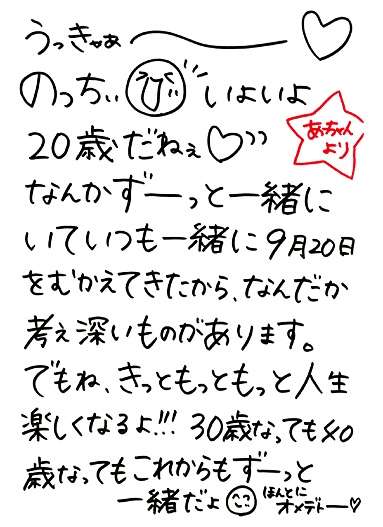 うっきゃぁ〜♡
のっちぃ いよいよ
20歳だねぇ♡
あ〜ちゃん
より
なんかずーっと一緒に
いていつも一緒に9月20日
をむかえてきたから、なんだか
考え深いものがあります。
でもね、きっともっともっと人生
楽しくなるよ!!! 30歳なっても40
歳なってもこれからもずーっと
一緒だょ ほんとに
オメデトー♡